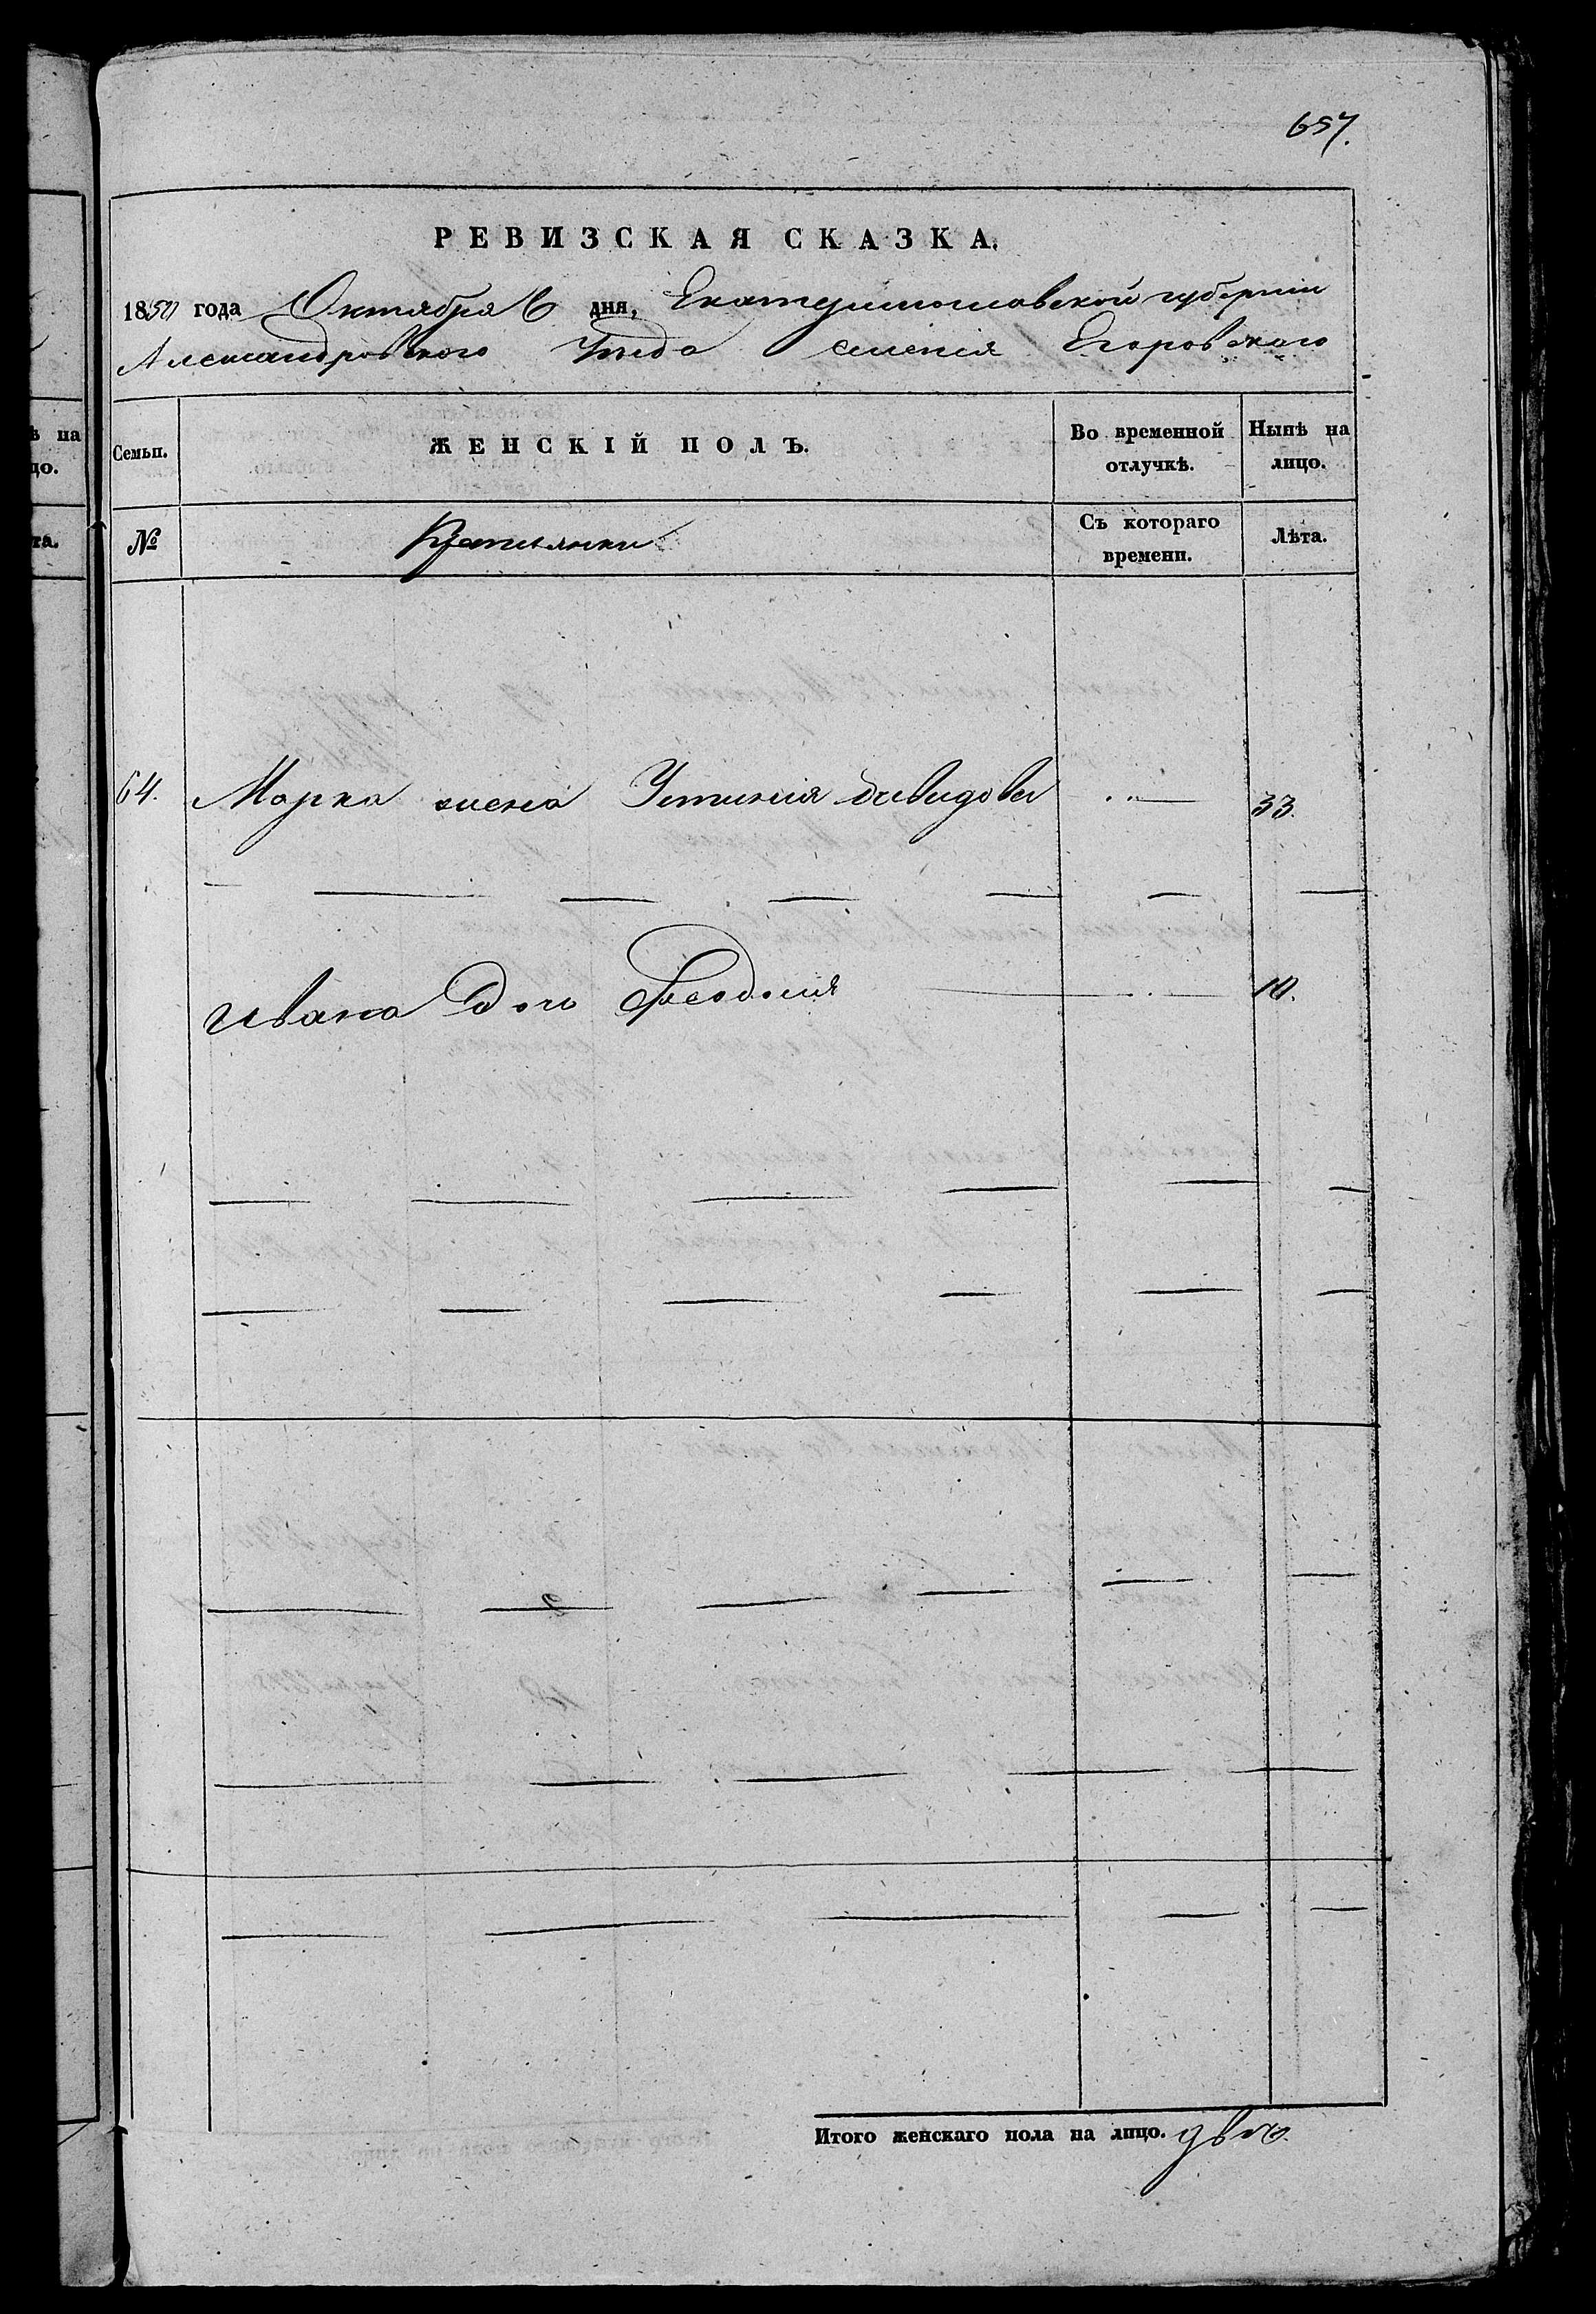 657.
РЕВИЗСКАЯ СКАЗКА.
1850 года Октября 6 дня, Екатеринославской губернии
Александровского Уезда селения Егоровского
Семьи. ЖЕНСКІЙ ПОЛЪ. Во временной отлучкѣ. Нынѣ на лицо.
№ Крестьянки Съ котораго времени. Лѣта.
64. Марка жена Устинія Давидова 33.
Ивана дочь Феодосия 10.
Итого женскаго пола на лицо. две.
ѣ на
цо.
та.